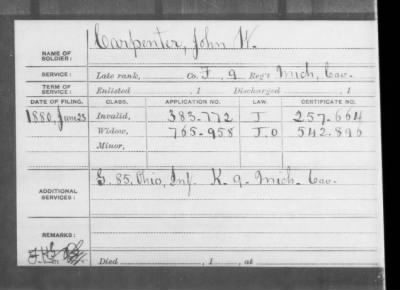 NAME OF SOLDIER: Carpenter, John W.
SERVICE: Late rank, Co. F, 9 Reg't Mich, Cav.
TERM OF SERVICE: Enlisted , 1 Discharged , 1
DATE OF FILING. CLASS. APPLICATION NO. LAW. CERTIFICATE NO.
1880, June 25 Invalid, 383.772 J 257.664
Widow, 765.958 J.O 542.896
Minor,
ADDITIONAL SERVICES: G. 85, Ohio, Inf. K. 9. Mich. Cav.
REMARKS:
Died , 1 , at